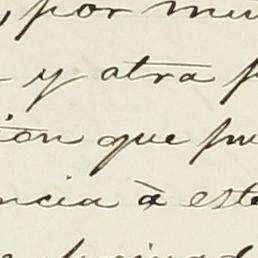 , por mu
y otra p
ión que pu
ncia à este